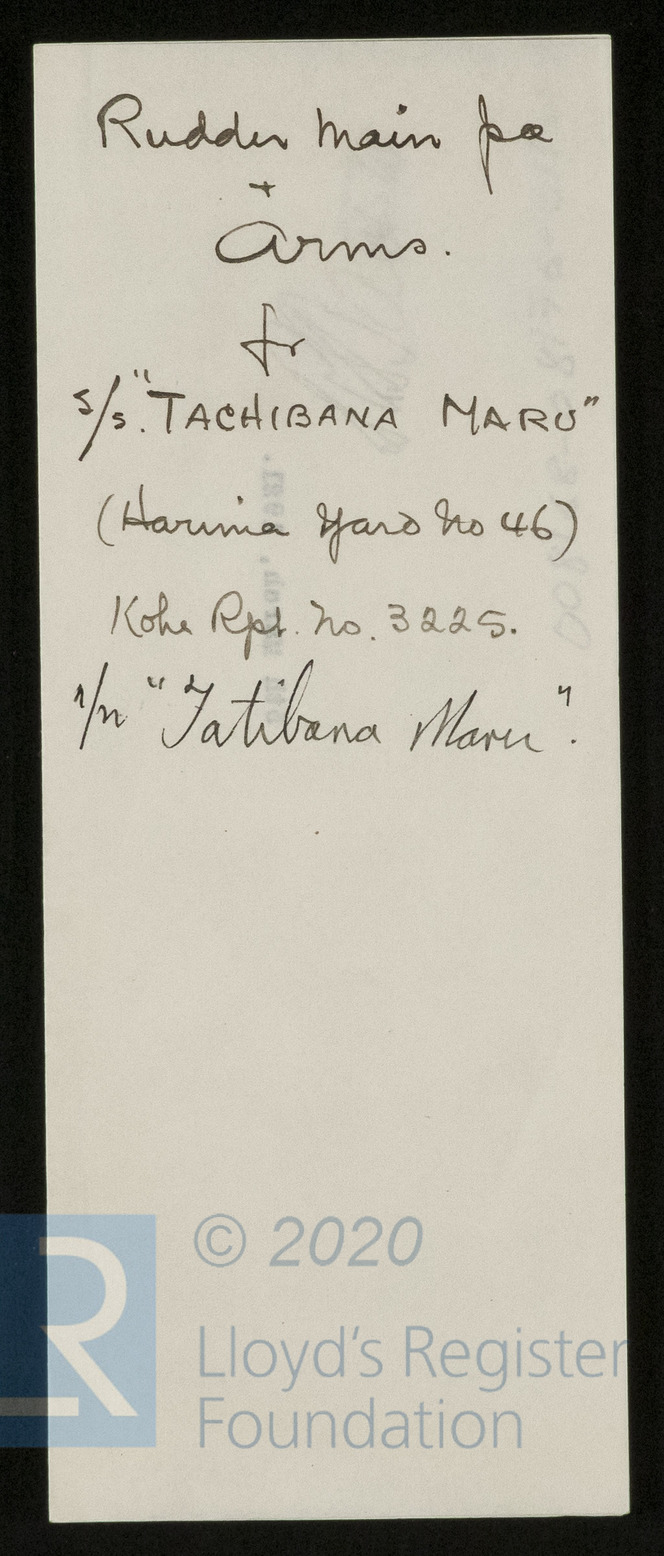 Rudder Main pce
+
Arms.
for
s/s. "TACHIBANA MARU"
(Harima Yard No 46)
Kobe Rpt. No. 3225.
"Tatibana Maru".
© 2020
Lloyd's Register
Foundation